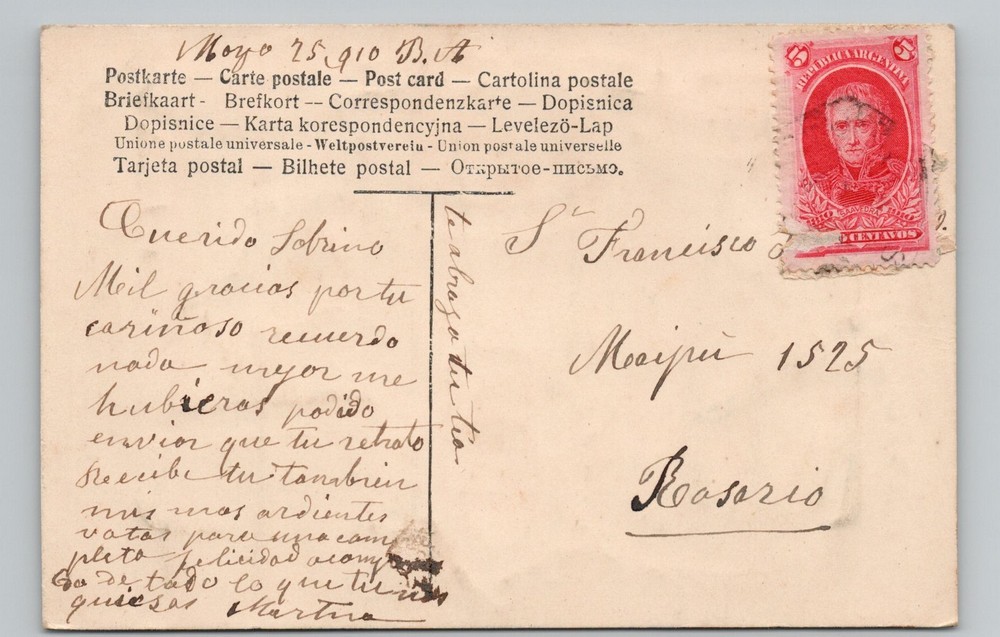 Mayo 25 910 B. A
Postkarte — Carte postale — Post card — Cartolina postale
Briefkaart - Brefkort -- Correspondenzkarte — Dopisnica
Dopisnice — Karta korespondencyjna — Levelezö-Lap
Unione postale universale - Weltpostverein - Union postale universelle
Tarjeta postal — Bilhete postal — Открытое-письмо.
Querido Sobrino
Mil gracias por tu
cariñoso recuerdo
nada mejor me
hubieras podido
enviar que tu retrato
Recibe tu tambien
mis mas ardientes
votos para una com
pleta felicidad acomp
da de todo lo que tu
quieras
te abraza tu tia
5 5
REPUBLICA ARGENTINA
SAAVEDRA
CENTAVOS
Sr Francisco
Maipú 1525
Rosario